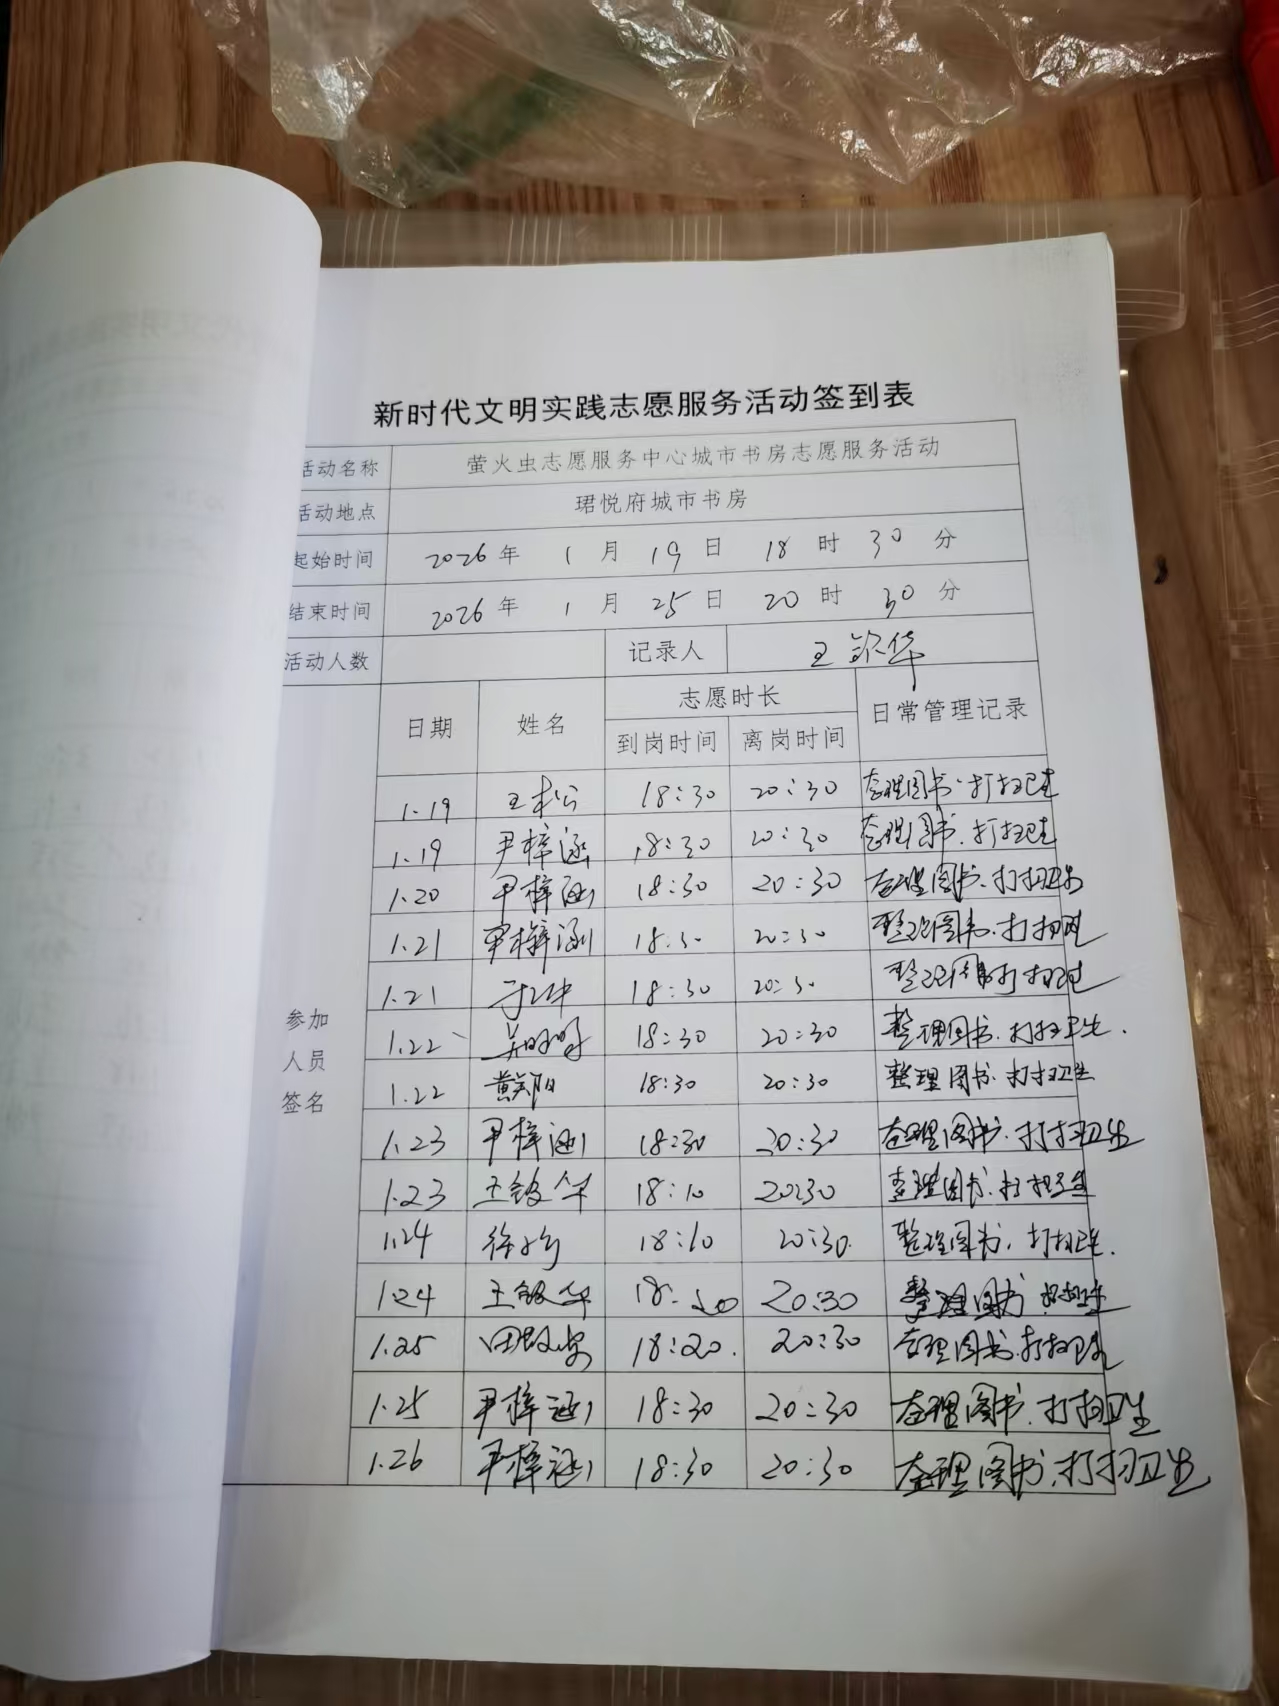 新时代文明实践志愿服务活动签到表
活动名称 萤火虫志愿服务中心城市书房志愿服务活动
活动地点 珺悦府城市书房
起始时间 2026年 1月 19日 18时 30分
结束时间 2026年 1月 25日 20时 30分
活动人数 记录人 王 华
日期 姓名 志愿时长 日常管理记录
到岗时间 离岗时间
参加
人员
签名
1.19 王松 18:30 20:30 整理图书.打扫卫生
1.19 尹梓涵 18:30 20:30 整理图书.打扫卫生
1.20 尹梓涵 18:30 20:30 整理图书.打扫卫生
1.21 尹梓涵 18:30 20:30 整理图书.打扫卫生
1.21 18:30 20:30 整理图书打扫卫生
1.22 18:30 20:30 整理图书.打扫卫生.
1.22 18:30 20:30 整理图书.打扫卫生
1.23 尹梓涵 18:30 20:30 整理图书.打扫卫生
1.23 王 华 18:10 20:30 整理图书.打扫卫生
1.24 18:10 20:30. 整理图书,打扫卫生.
1.24 王 华 20:30 整理图书 打扫卫生
1.25 18:20. 20:30 整理图书.打扫卫生
1.25 尹梓涵 18:30 20:30 整理图书.打扫卫生
1.26 尹梓涵 18:30 20:30 整理图书.打扫卫生